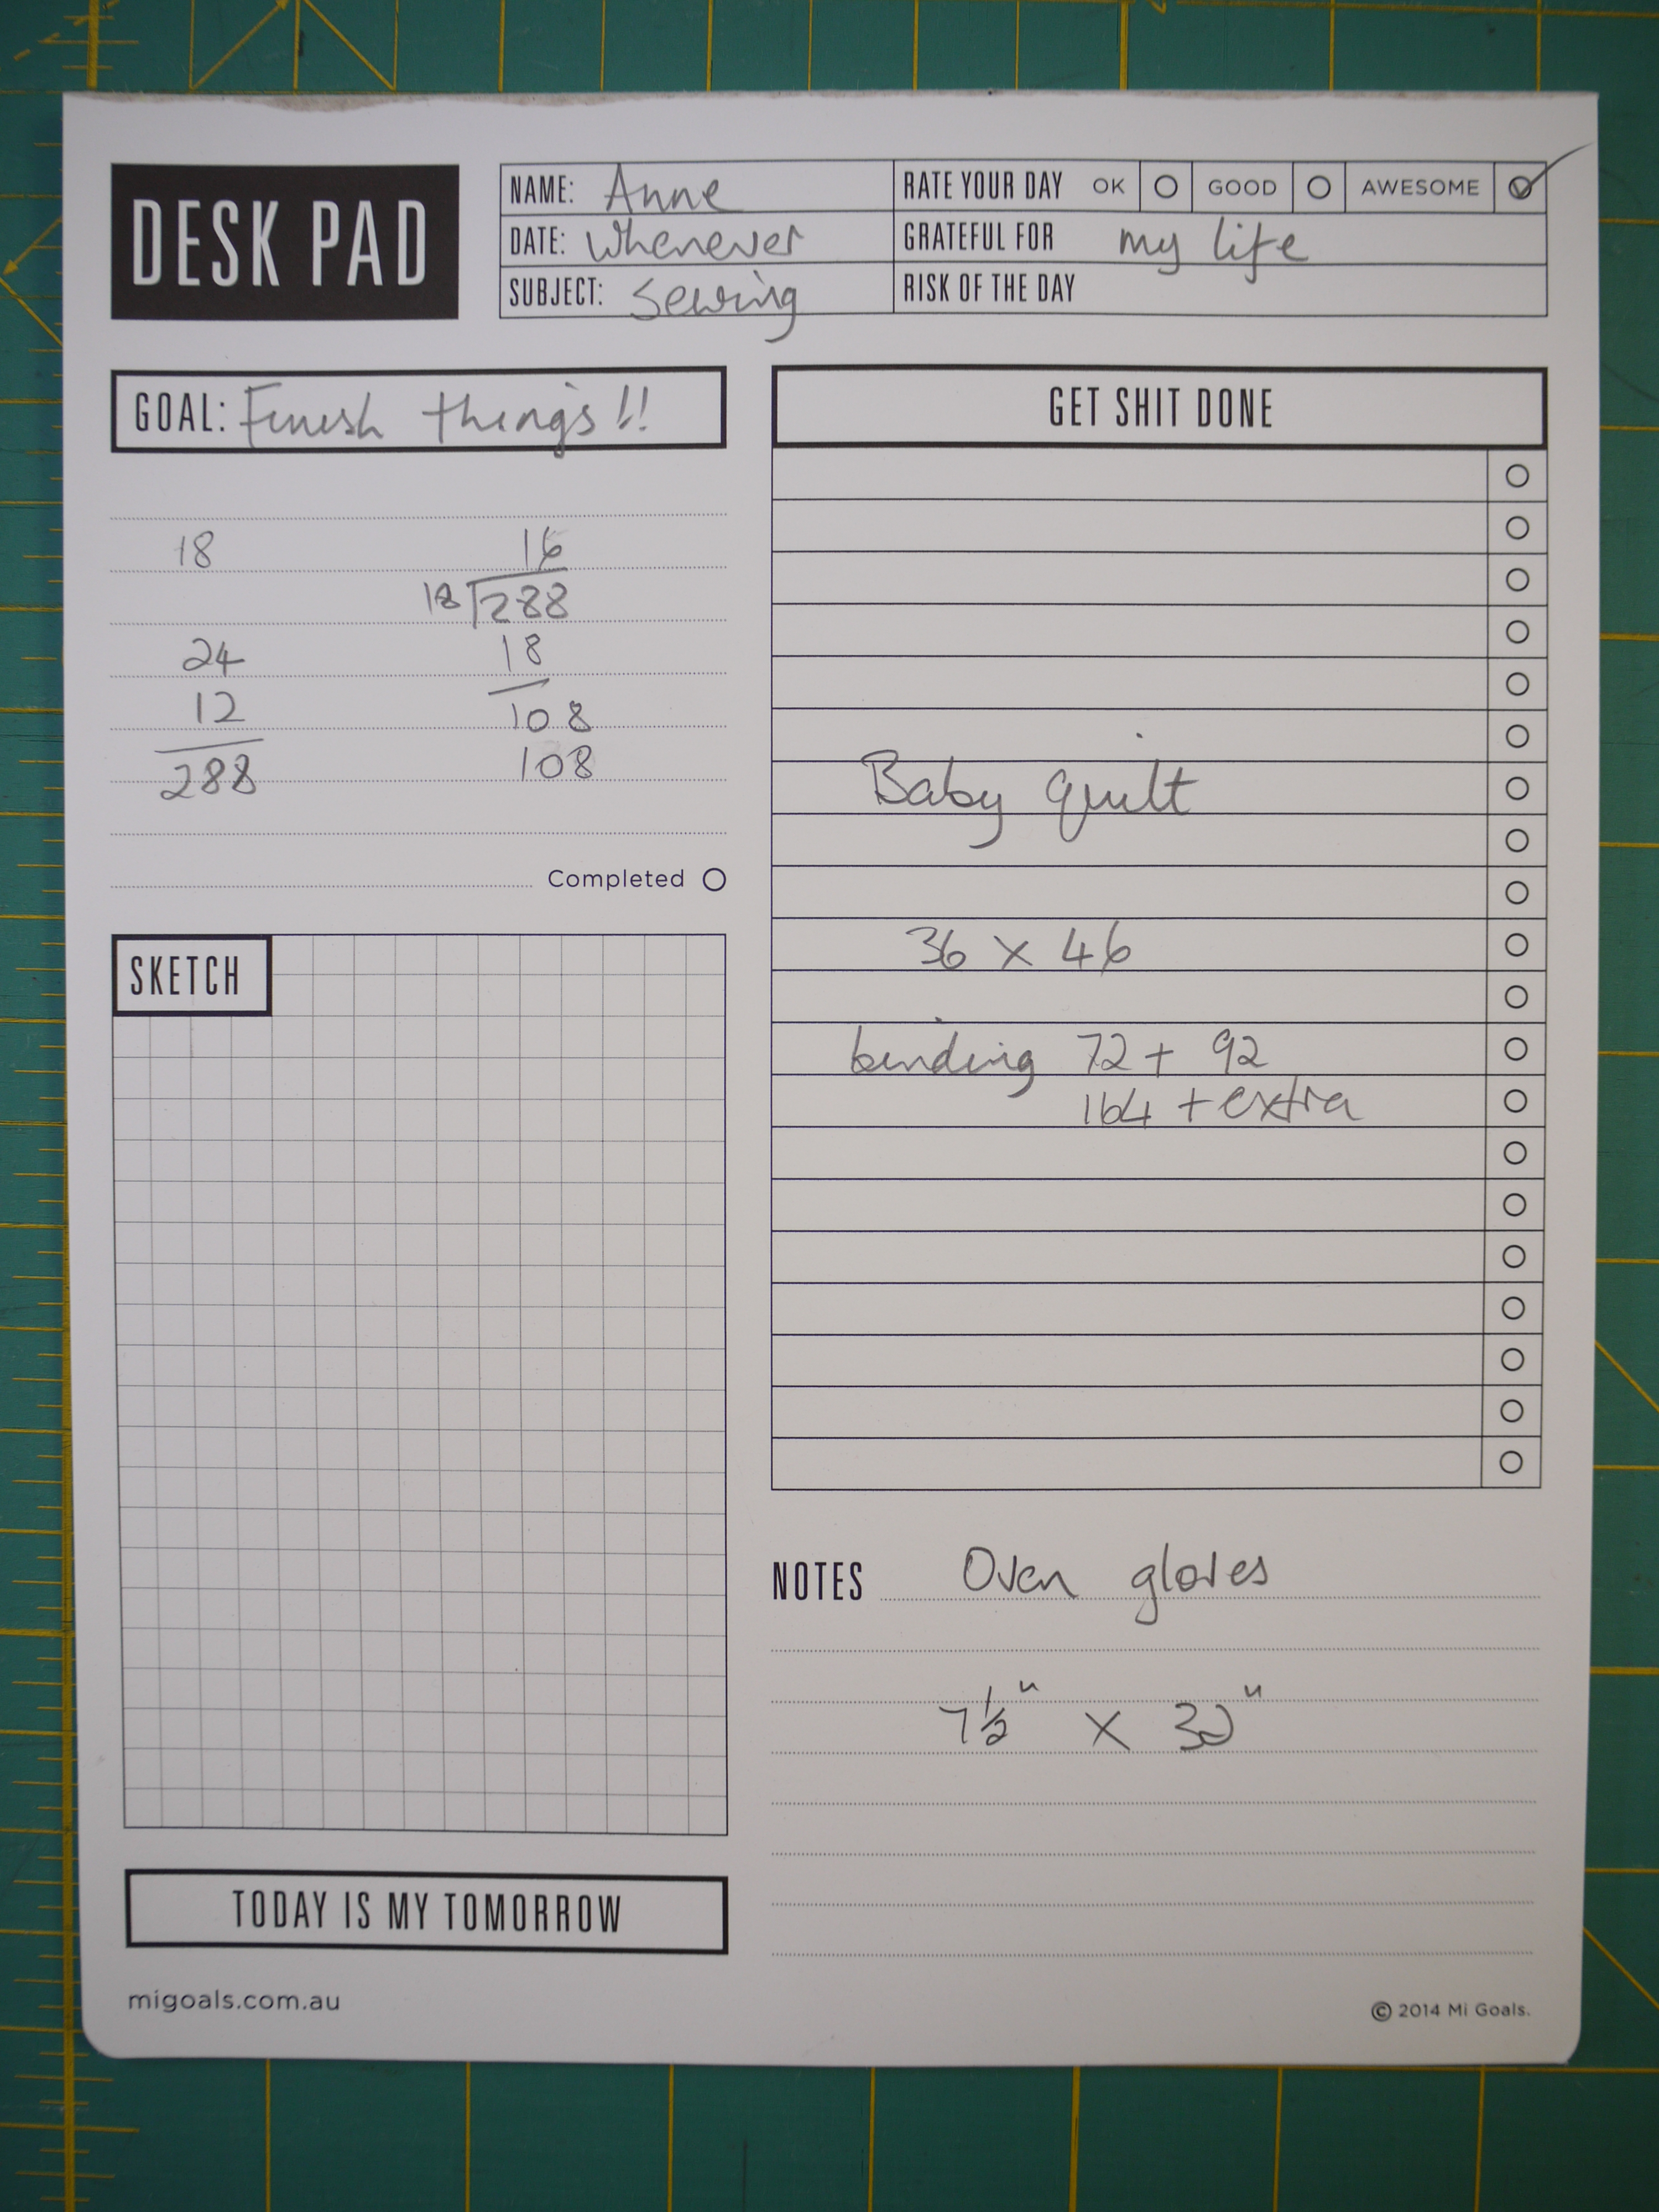 DESK PAD
NAME: Anne
DATE: Whenever
SUBJECT: Sewing
RATE YOUR DAY OK GOOD AWESOME
GRATEFUL FOR my life
RISK OF THE DAY
GOAL: Finish things!!
18
24
12
288
16
18 288
18
108
108
Completed
SKETCH
TODAY IS MY TOMORROW
migoals.com.au
GET SHIT DONE
Baby quilt
36 x 46
binding 72 + 92
164 + extra
NOTES Oven gloves
7 1/2" x 32"
© 2014 Mi Goals.